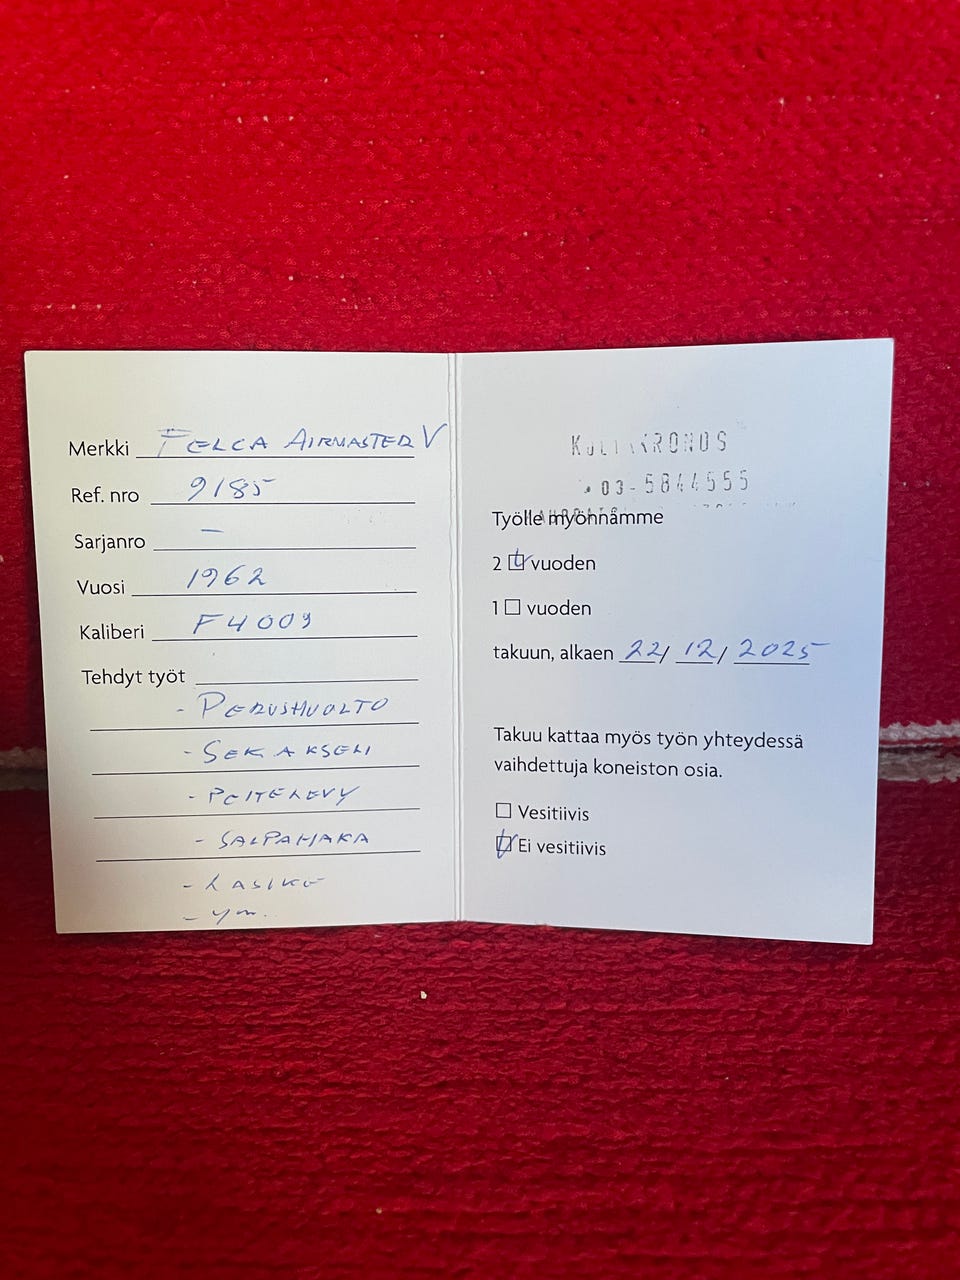 Merkki FELCA AIRMASTER V
Ref. nro 9185
Sarjanro —
Vuosi 1962
Kaliberi F4009
Tehdyt työt
- PERUSHUOLTO
- SEKAKSELI
- PEITELEVY
- SALPAHAKA
- LASIKE
- ym.
KULTAKRONOS
03-5844555
Työlle myönnämme
2 vuoden
1 vuoden
takuun, alkaen 22/ 12/ 2025
Takuu kattaa myös työn yhteydessä
vaihdettuja koneiston osia.
Vesitiivis
Ei vesitiivis